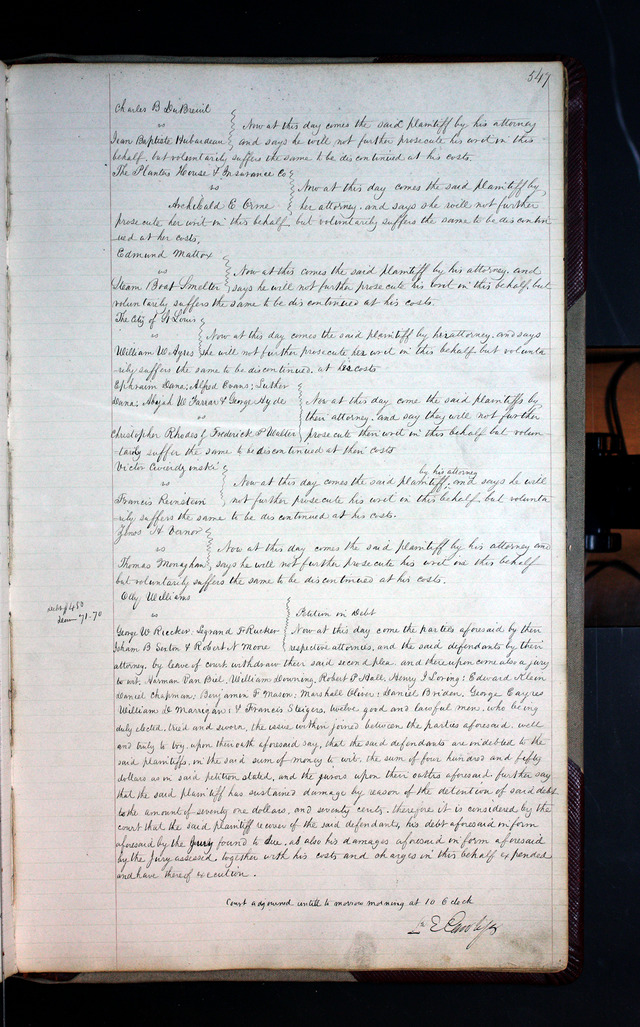 547
Charles B DuBreuil
vs
Jean Baptiste Hubardeau
Now at this day comes the said plaintiff by his attorney
and says he will not further prosecute his writ in this
behalf, but voluntarily suffers the same to be discontinued at his costs.
The Planters House & Insurance Co
vs
Archibald E Orme
Now at this day comes the said Plaintiff by
her attorney. and says she will not further
prosecute her writ in this behalf but voluntarily suffers the same to be discontin
ued at her costs,
Edmund Mattox
vs
Steam Boat Smelter
Now at this comes the said plaintiff by his attorney, and
says he will not further prosecute his writ in this behalf, but
voluntarily suffers the same to be discontinued at his costs.
The City of St Louis
vs
William W Ayres
Now at this day comes the said plaintiff by her attorney, and says
she will not further prosecute her writ in this behalf but volunta
rily suffers the same to be discontinued. at her costs
Ephraim Dana; Alfred Evans; Luther
Dana; Abijah W Farrar & George Hyde
vs
Christopher Rhodes & Frederick P Walter
Now at this day come the said plaintiffs by
their attorney. and say they will not further
prosecute their writ in this behalf but volun-
tarily suffer the same to be discontinued at their costs
Victor
vs
Francis Reinstein
Now at this day comes the said plaintiff, by his attorney and says he will
not further prosecute his writ in this behalf but volunta
rily suffers the same to be discontinued at his costs.
H Vernor
vs
Thomas Monaghan
Now at this day comes the said plaintiff by his attorney and
says he will not further prosecute his writ in this behalf
but voluntarily suffers the same to be discontinued at his costs.
Williams
vs
George W Rucker; Legrand F Rucker
Isham B Sexton & Robert N Moore
debt $450
dam 71-70
Petition in Debt
Now at this day come the parties aforesaid by their
respective attorneys, and the said defendants by their
attorney. by leave of court withdraw their said second plea. and thereupon come also a jury
to wit; Harman Van Biel; William Downing, Robert P Hall, Henry J Loring; Edward Klein
Daniel Chapman; Benjamin F Mason; Marshall Oliver; Daniel Briden, George Eayres
William D Marrigan; & Francis Steigers, twelve good and lawful men, who being
duly elected, tried and sworn, the issue within joined between the parties aforesaid. well
and truly to try, upon their oath aforesaid say, that the said defendants are indebted to the
said plaintiffs, in the said sum of money to wit. the sum of four hundred and fifty
dollars as in said petition stated, and the jurors upon their oaths aforesaid further say
that the said plaintiff has sustained damage by reason of the detention of said debt
to the amount of seventy one dollars, and seventy cents. therefore it is considered by the
court that the said plaintiff recover of the said defendants, his debt aforesaid in form
aforesaid by the jury found to due. as also his damages aforesaid in form aforesaid
by the Jury assessed together with his costs and charges in this behalf expended
and have thereof execution.
Court adjourned untill to morrow morning at 10 O clock